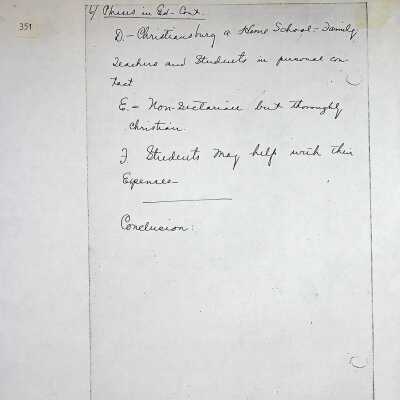 351
4/ Crisis in Ed- Cont.
D.- Christiansburg a Home School - Family
Teachers and Students in personal con-
tact
E.- Non-Sectarian but thoroughly
Christian.
F. Students may help with their
Expenses-
Conclusion: